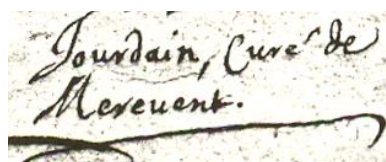 Jourdain, Curé de
Merevent.